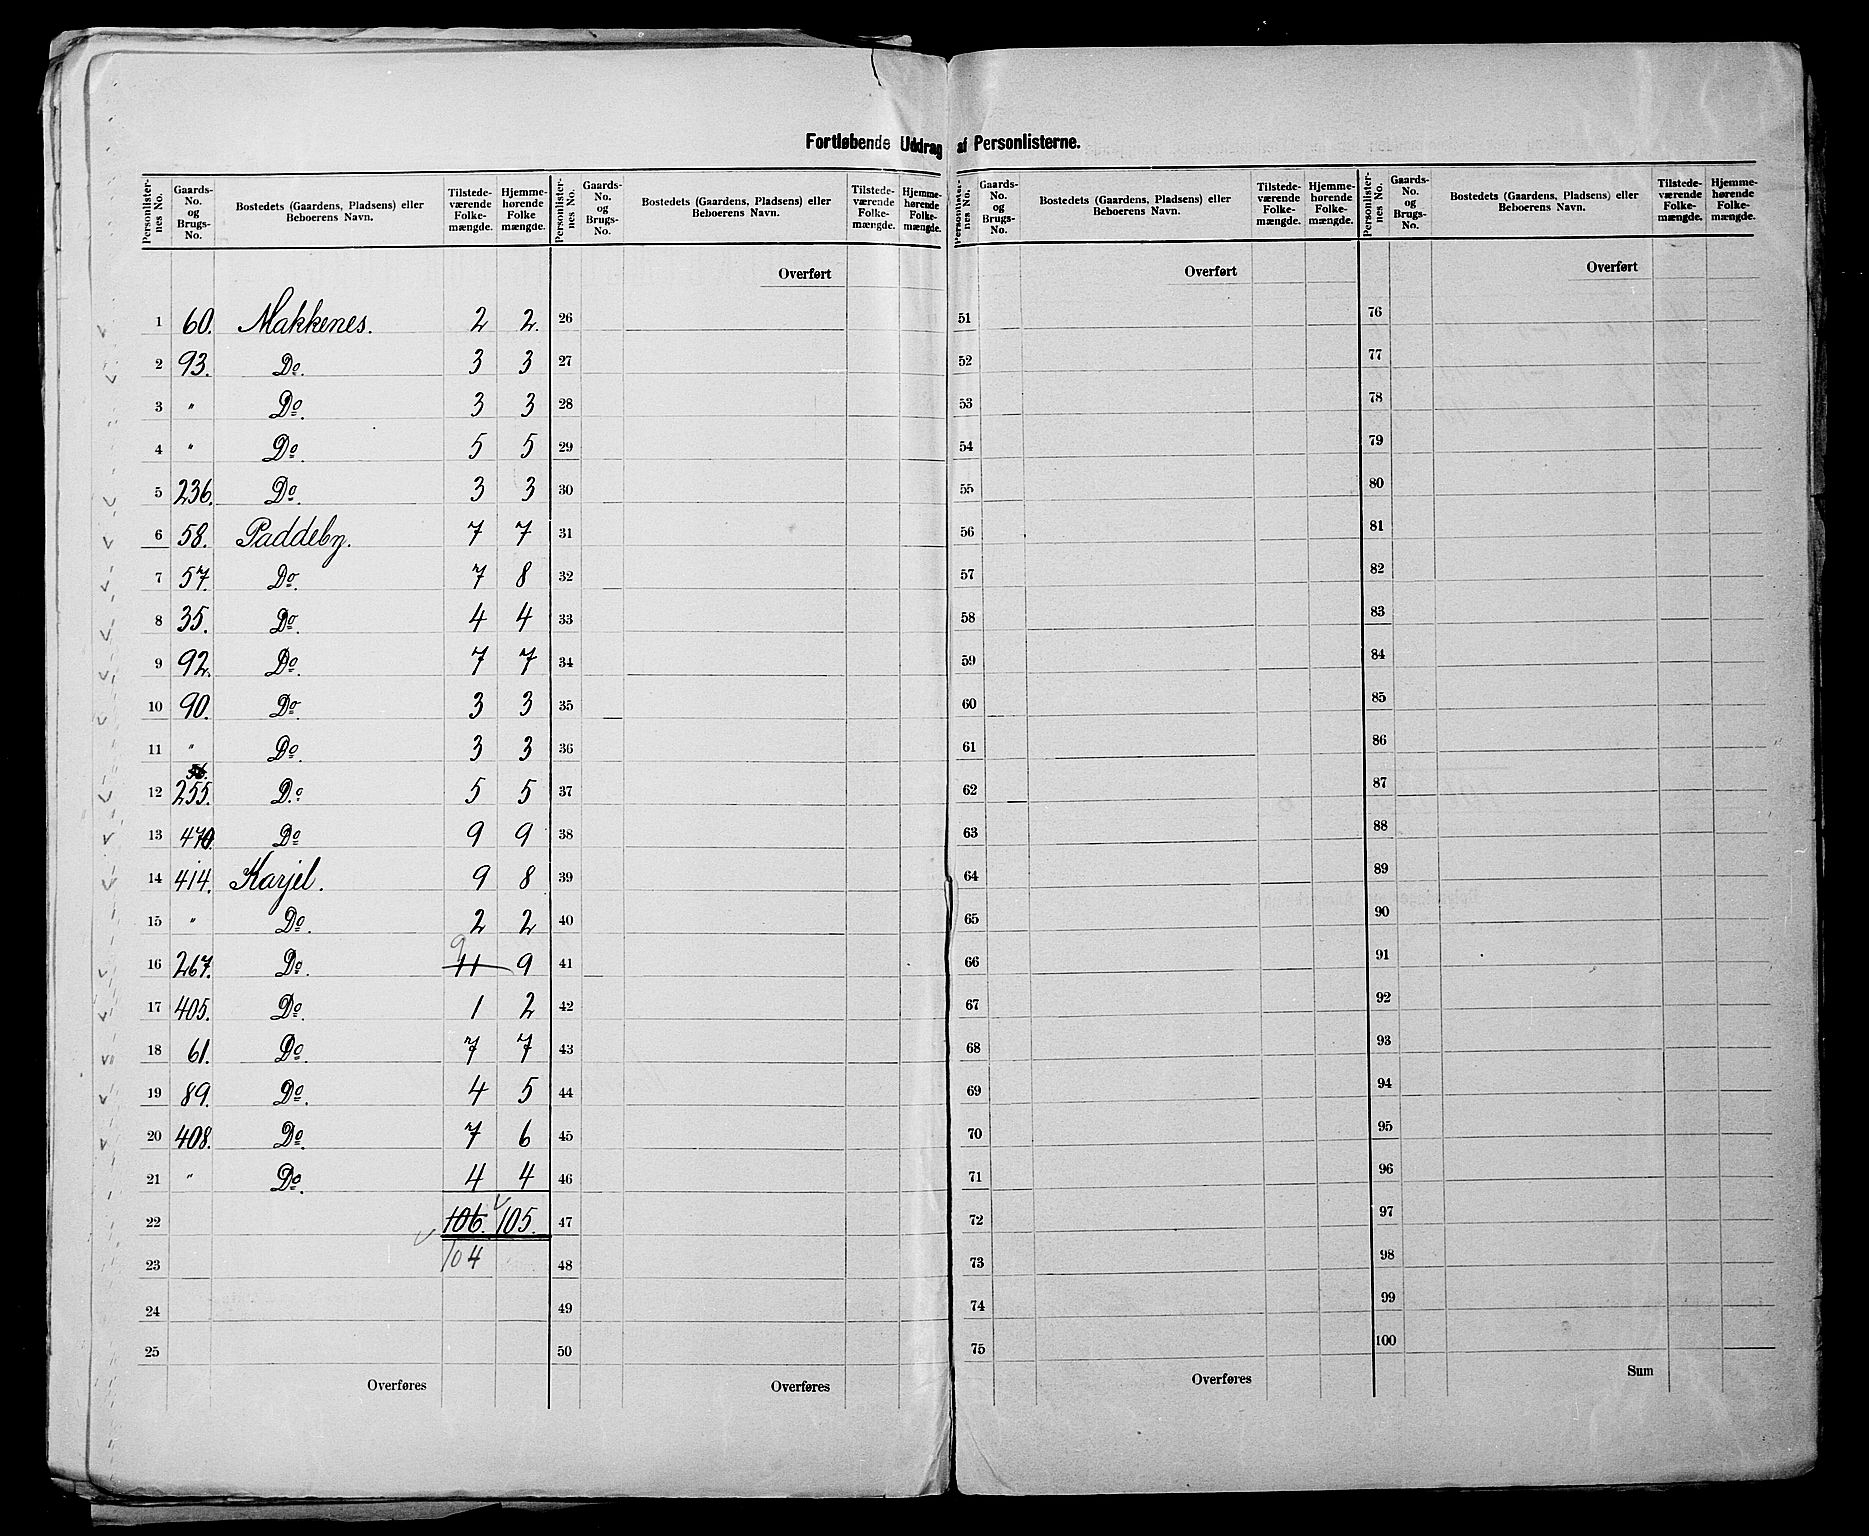 Fortløbende Uddrag af Personlisterne.
Personlister-nes No. | Gaards-No. og Brugs-No. | Bostedets (Gaardens, Pladsens) eller Beboerens Navn. | Tilstede-værende Folke-mængde. | Hjemme-hørende Folke mængde. | Personlister-nes No. | Gaards-No. og Brugs-No. | Bostedets (Gaardens, Pladsens) eller Beboerens Navn. | Tilstede-værende Folke-mængde. | Hjemme-hørende Folke-mængde. | Personlister-nes No. | Gaards-No. og Brugs-No. | Bostedets (Gaardens, Pladsens) eller Beboerens Navn. | Tilstede-værende Folke-mængde. | Hjemme-hørende Folke-mængde. | Personlister-nes No. | Gaards-No. og Brugs-No. | Bostedets (Gaardens, Pladsens) eller Beboerens Navn. | Tilstede-værende Folke-mængde. | Hjemme-hørende Folke-mængde.
Overført Overført Overført
1 60. Makkenes. 2 2. 26 51 76
2 93. Do. 3 3 27 52 77
3 " Do. 3 3 28 53 78
4 " Do. 5 5 29 54 79
5 236. Do. 3 3 30 55 80
6 58. Paddeby. 7 7 31 56 81
7 57. Do. 7 8 32 57 82
8 35. Do. 4 4 33 58 83
9 92. Do. 7 7 34 59 84
10 90. Do. 3 3 35 60 85
11 " Do. 3 3 36 61 86
12 255. Do. 5 5 37 62 87
13 470. Do 9 9 38 63 88
14 414. Karjel. 9 8 39 64 89
15 " Do. 2 2 40 65 90
9
16 267. Do. 11 9 41 66 91
17 405. Do. 1 2 42 67 92
18 61. Do. 7 7 43 68 93
19 89. Do. 4 5 44 69 94
20 408. Do 7 6 45 70 95
21 " Do. 4 4 46 71 96
22 106. 105. 47 72 97
23 104 48 73 98
24 49 74 99
25 50 75 100
Overføres Overføres Overføres Sum